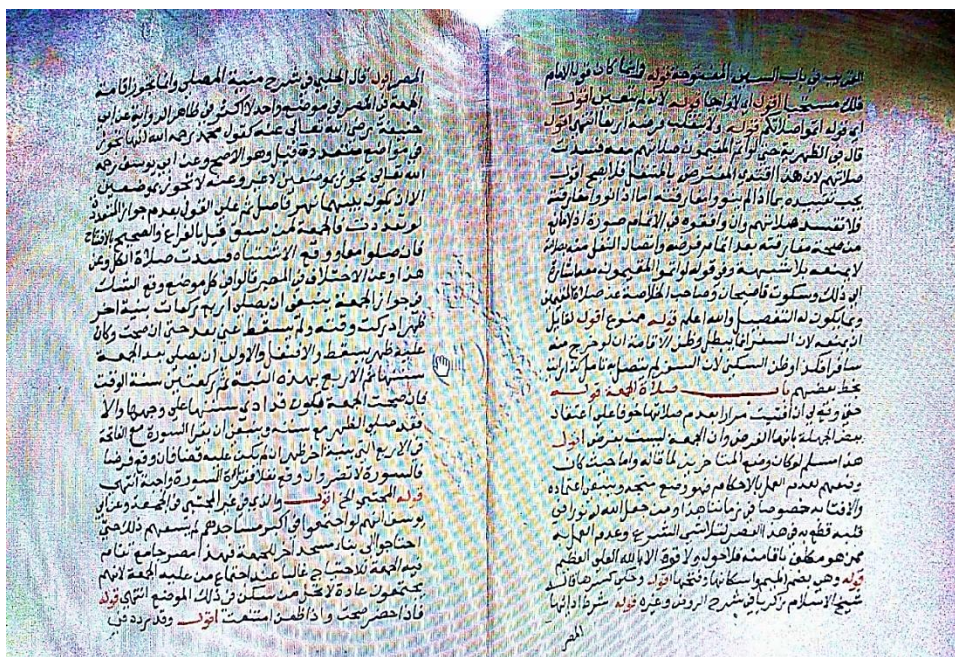 الغريب في باب السين المفتوحة قوله فلما كان قول الامام
فلك مستحبا اقول اي لا واجبا قوله لانه لم يتعين اقول
اي قوله اتموا صلاتكم قوله ولا تنقلب فرضه اربعا انتهى اقول
قال في الظهيرية حتى لو اتم المقيمون صلاتهم معه فسدت
صلاتهم لان هذا اقتدى المفترض بالمتنفل فلا تصح اقول
يجب تقييده بما اذا لم ينووا مفارقته اما اذا نووا مفارقته
فلا تفسد صلاتهم وان وافقوه في الاتمام صورة اذ لا مانع
من صحة مفارقته بعد اتمام فرضه واتصال النفل منه بصلاته
لا يمنعه بلا شبهة وفي قوله لو اتموا المقيمون معه اشارة
الى ذلك وسكوت قاضيخان وصاحب الخلاصة عند صلاة المقيمين
وبما يكون له التفصيل والله اعلم قوله ممنوع اقول لقايل
ان يمنعه لان السفر انما يبطل وطن الاقامة ان لو خرج منه
مسافرا فكذا وطن السكنى لان السفر لم يتصل به تامل كذا رايته
بخط بعضهم باب صلاة الجمعة قوله
حتى وقع لي اني افتيت مرارا بعدم صلاتها خوفا على اعتقاد
بعض الجهلة بانها الفرض وان الجمعة ليست بفرض اقول
هذا مسلم لو كان وضع المتاخرين لما قاله واما حيث كان
وضعهم لعدم العمل بالاحكام فهو وضع متجه وينبغي اعتماده
والافتا به خصوصا في زماننا هذا ومن جعل الله له نورا في
قلبه قطع به في هذا العصر لتلاشي الشرع وعدم العمل به
ممن هو مكلف باقامته فلا حول ولا قوة الا بالله العلي العظيم
قوله وهي بضم الميم واسكانها وفتحها اقول وحكى كسرها قال
شيخ الاسلام زكريا في شرح الروض وغيره قوله شرط ادائها
المصر
المصر اقول قال الحلبي في شرح منية المصلي وانما تجوز اقامة
الجمعة في المصر في موضع واحد لا اكثر في ظاهر الرواية عن ابي
حنيفة رضي الله تعالى عنه كقول محمد رحمه الله انها تجوز
في مواضع متعددة قيل وهو الاصح وعن ابي يوسف رحمه
الله تعالى تجوز بموضعين لا غير وعنه لا تجوز بموضعين
الا ان يكون بينهما نهر فاصل ثم على القول بعدم جواز التعدد
لو تعددت فالجمعة لمن سبق قيل بالفراغ والصحيح بالافتتاح
فان صلوا معا او وقع الاشتباه فسدت صلاة الكل وعن
هذا وعن الاختلاف في المصر قالوا في كل موضع وقع الشك
في جواز الجمعة ينبغي ان يصلى اربع ركعات بنية اخر
ظهر ادركت وقته ولم يسقط عني بعد حتى ان صحت وكان
عليه ظهر يسقط والا فنفل والاولى ان يصلي بعد الجمعة
سنتها ثم الاربع بهذه النية ثم ركعتين سنة الوقت
فان صحت الجمعة فيكون قد ادى سنتها على وجهها والا
فقد صلى الظهر مع سنته وينبغي ان يقرا السورة مع الفاتحة
في الاربع التي بنية اخر ظهر ان لم يكن عليه قضا فان وقع فرضا
فالسورة لا تضر وان وقع نفلا فقراة السورة واجبة انتهى
قوله المجتبى الخ اقول والذي في غير المجتبى في الجمعة وعن ابي
يوسف انهم لو اجتمعوا في اكبر مساجدهم لم يسعهم ذلك حتى
احتاجوا الى بناء مسجد اخر للجمعة فهذا مصر جامع تقام
فيه الجمعة للاحتياج غالبا عند اجتماع من عليه الجمعة لانهم
يجتمعون عادة لا كل من سكن في ذلك الموضع انتهى قوله
فاذا حضر صحت واذا ظعن امتنعت اقول وقد تردد في